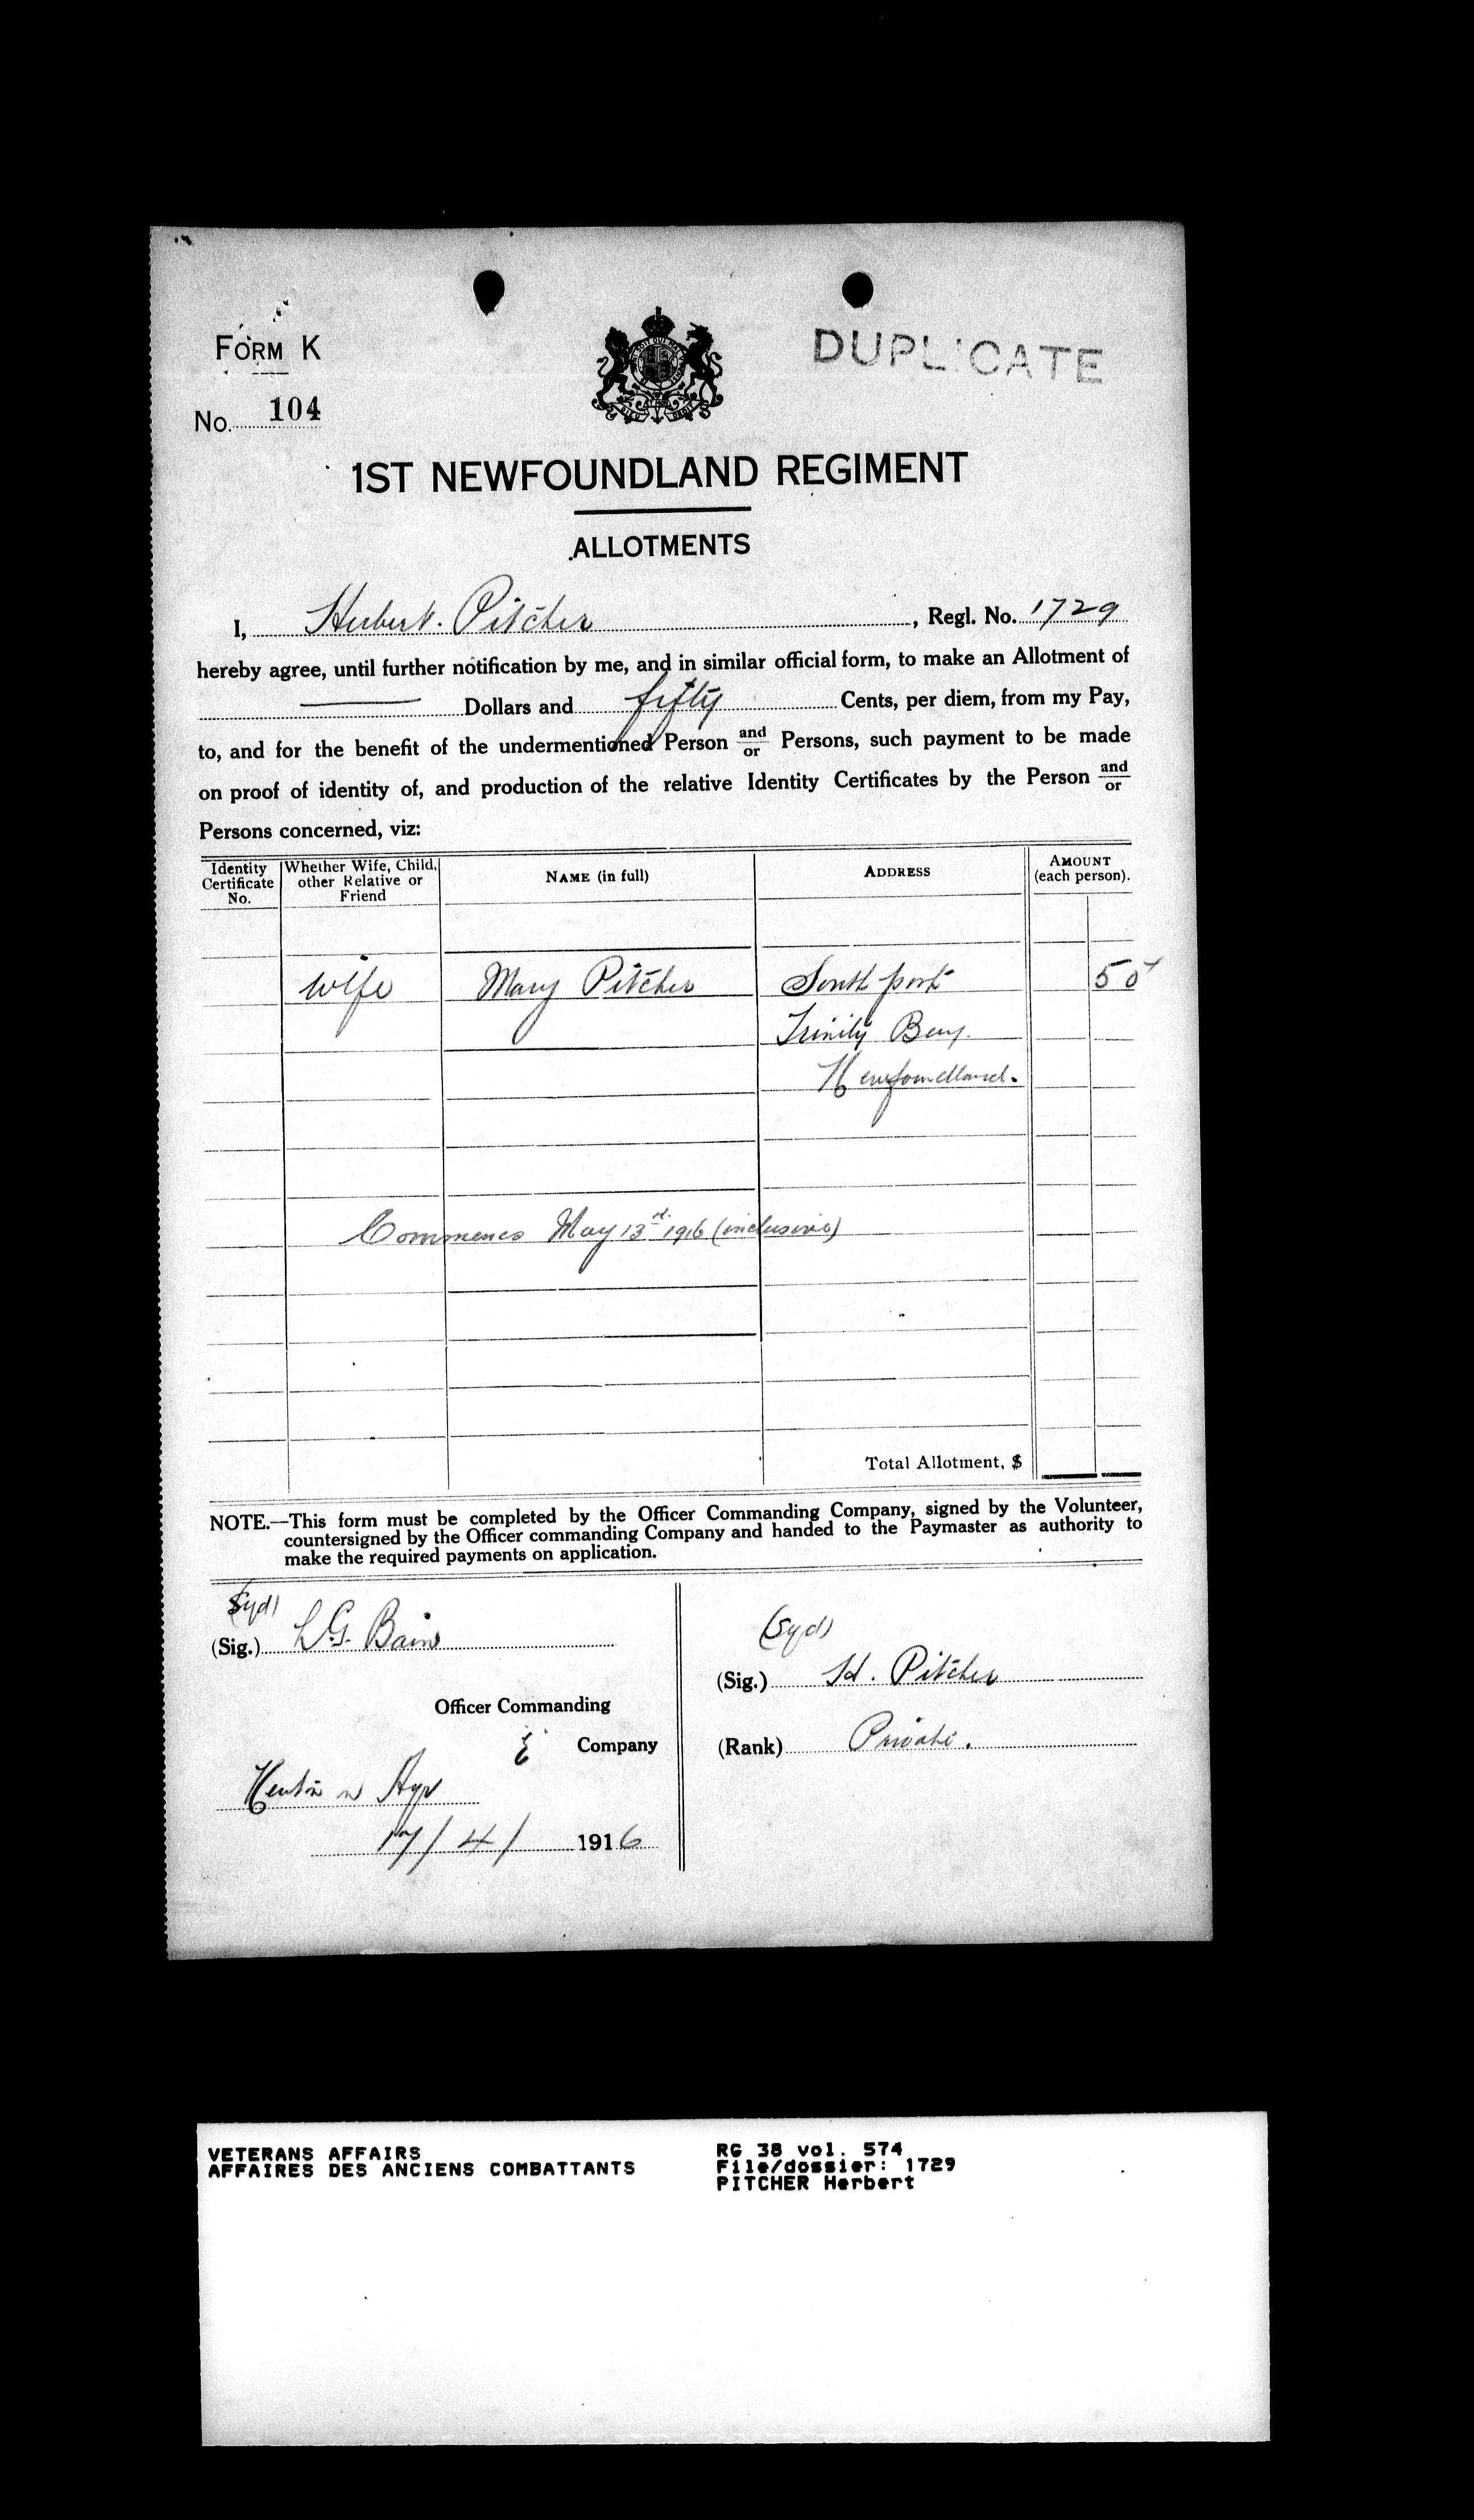 FORM K
DUPLICATE
No. 104
1ST NEWFOUNDLAND REGIMENT
ALLOTMENTS
I, Herbert. Pitcher, Regl. No. 1729
hereby agree, until further notification by me, and in similar official form, to make an Allotment of
— Dollars and fifty Cents, per diem, from my Pay,
to, and for the benefit of the undermentioned Person and/or Persons, such payment to be made
on proof of identity of, and production of the relative Identity Certificates by the Person and/or
Persons concerned, viz:
Identity Certificate No. Whether Wife, Child, other Relative or Friend NAME (in full) ADDRESS AMOUNT (each person).
Wife Mary Pitcher South port 50
Trinity Bay.
Newfoundland.
Commence May 13rd 1916 (inclusive)
Total Allotment, $
NOTE.—This form must be completed by the Officer Commanding Company, signed by the Volunteer,
countersigned by the Officer commanding Company and handed to the Paymaster as authority to
make the required payments on application.
(Sgd)
(Sig.) Bain
Officer Commanding
E Company
Newton n Ayr
17/4/ 1916
(Sgd)
(Sig.) H. Pitcher
(Rank) Private.
VETERANS AFFAIRS
AFFAIRES DES ANCIENS COMBATTANTS
RG 38 vol. 574
File/dossier: 1729
PITCHER Herbert